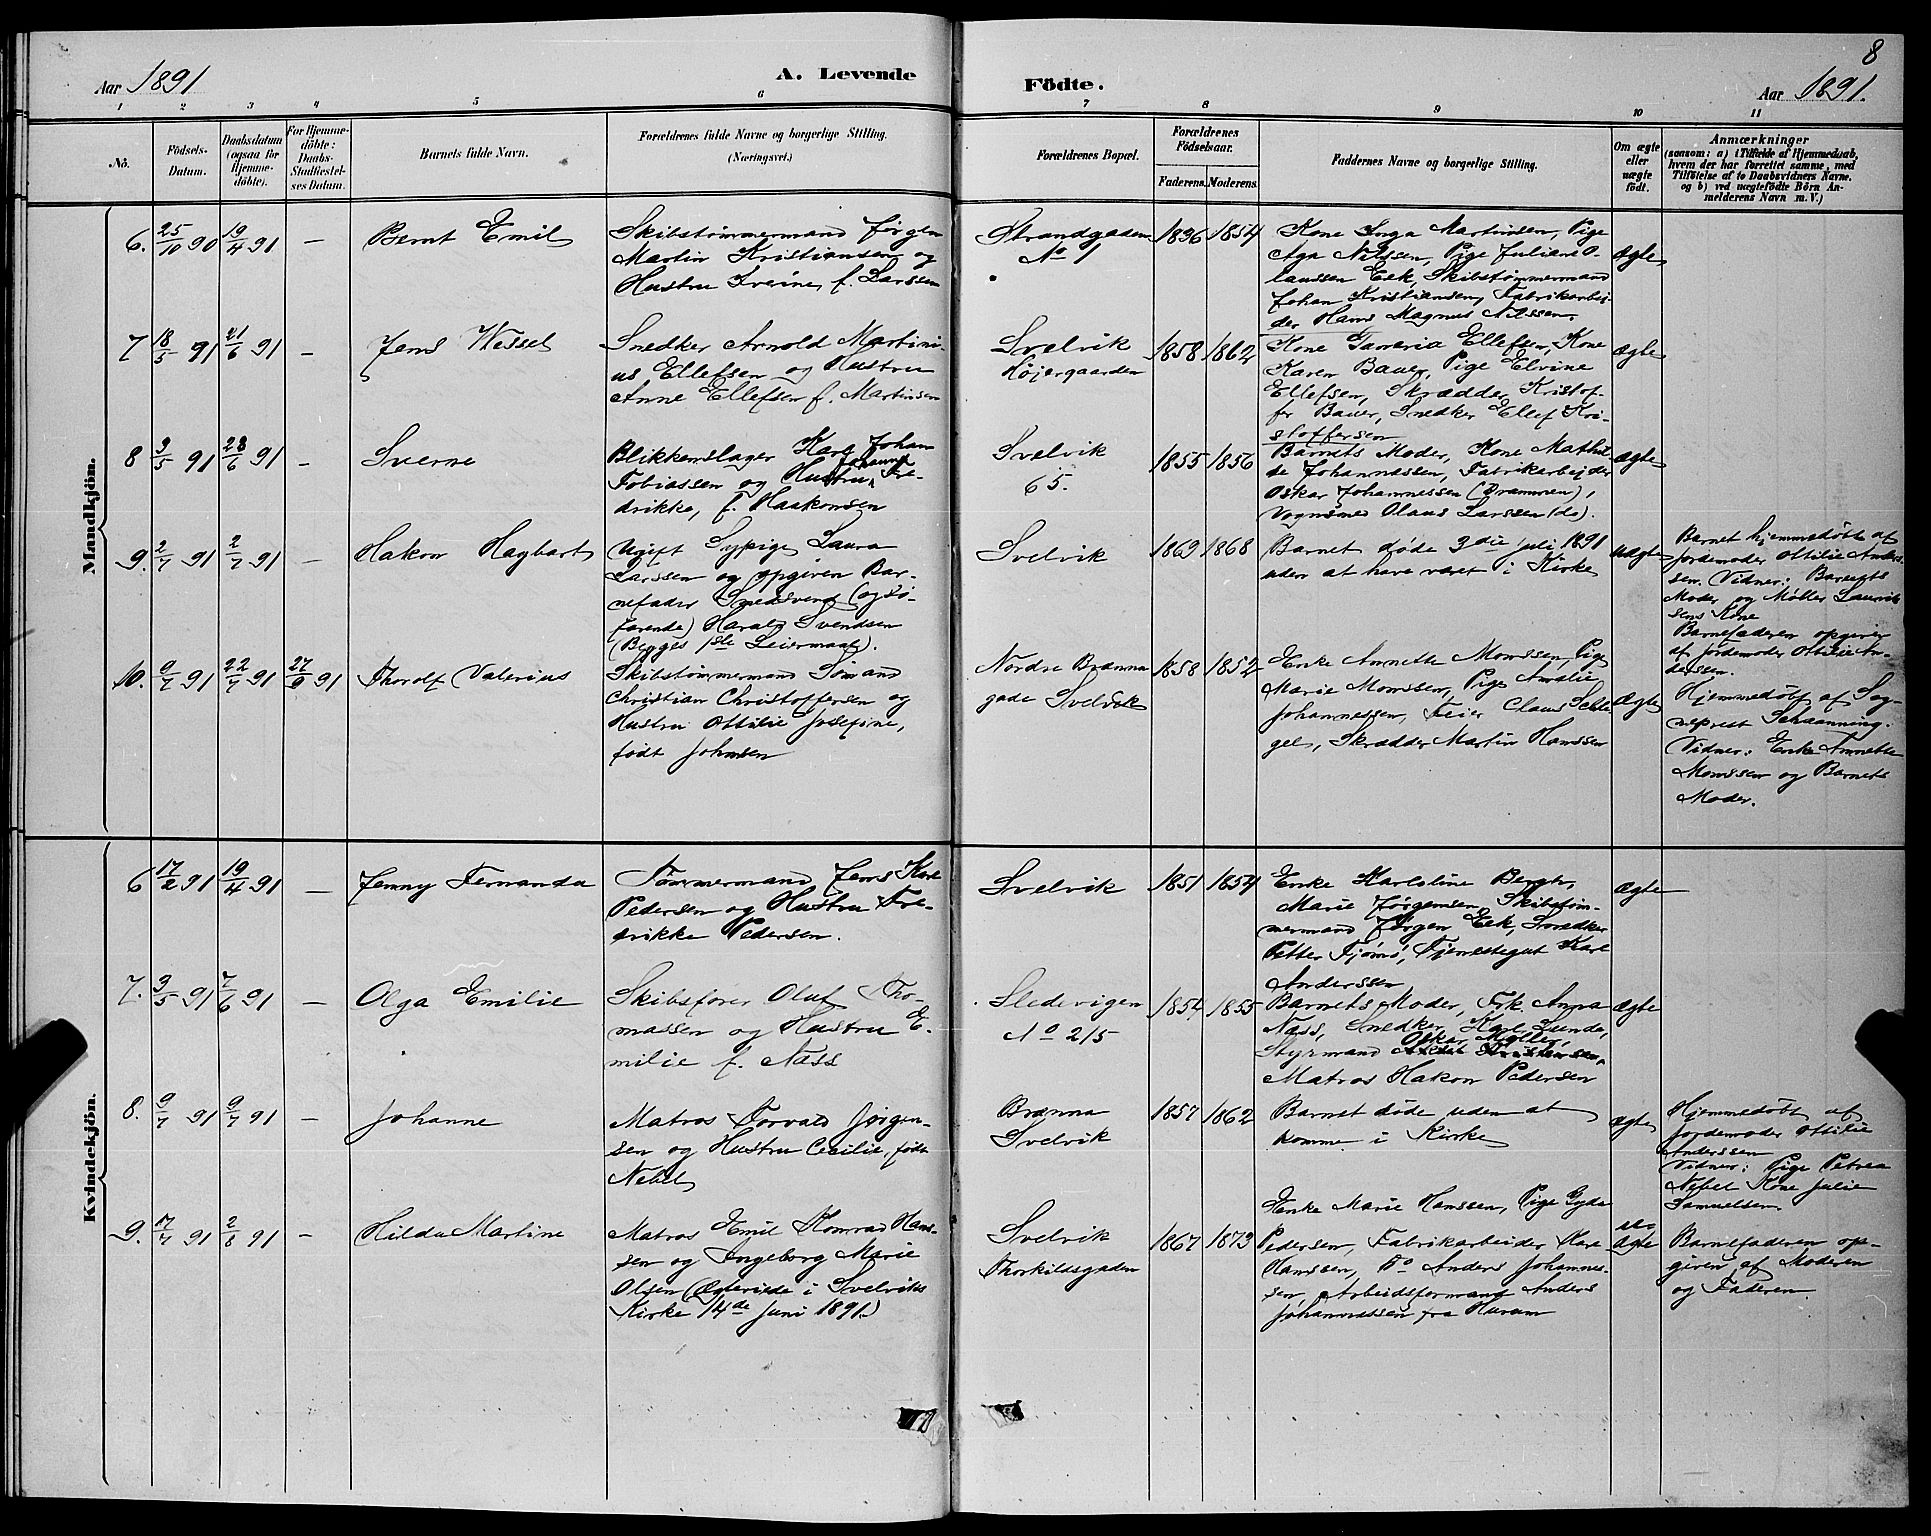 8
Aar 1891
A. Levende
Födte.
Aar 1891.
1 2 3 4 5 6 7 8 9 10 11
No.
Födsels-
Datum.
Daabsdatum
(ogsaa for
Hjemme-
döbte).
For Hjemme-
döbte:
Daabs-
Stadfæstel-
ses Datum.
Barnets fulde Navn.
Forældrenes fulde Navne og borgerlige Stilling.
(Næringsvei.)
Forældrenes Bopæl.
Forældrenes
Födselsaar.
Faderens. Moderens.
Faddernes Navne og borgerlige Stilling.
Om ægte
eller
uægte
födt.
Anmærkninger
(saasom: a) i Tilfælde af Hjemmedaab,
hvem der har forrettet samme, med
Tilföielse af to Daabsvidners Navne.
og b) ved uægtefödte Börn An-
melderens Navn m. V.)
Mandkjön.
6. 25/10 90 19/4 91 — Bernt Emil
Skibstømmermand Jørgen
Martin Kristiansen og
Hustru Iverine, f. Larssen
Strandgaden
No 1
1836 1854
Kone Inga Martinsen, Pige
Aga Nilssen, Pige Juliane O-
laussen Eek, Skibstømmermand
Johan Kristiansen, Fabrikarbei-
der Hans Magnus Nilssen.
Ægte
7 18/5 91 21/6 91 — Jens Wessel
Snedker Arnold Martini-
us Ellefsen og Hustru
Anne Ellefsen f. Martinsen
Svelvik
Højergaarden
1858 1862
Kone Ellefsen, Kone
Karen Bauer, Pige Elvine
Ellefsen, Skrædder Kristof-
fer Bauer, Snedker Ellef Kri-
stoffersen
Ægte
8 3/5 91 28/6 91 — Sverne
Blikkenslager Karl Johan
Tobiassen og Hustru Johanne Fre-
drikke, f. Haakonsen
Svelvik
65.
1855 1856
Barnets Moder, Kone Mathil-
de Johannessen, Fabrikarbejder
Oskar Johannessen (Drammen),
Vognsmed Olaus Larssen (do).
Ægte
9. 2/7 91 2/7 91 — Hakon Hagbart
Ugift Sypige Laura
Larssen og opgiven Bar-
nefader Smedsvend (og sø-
farende) Harald Svendsen
(Begges 1ste Leiermaal).
Svelvik
1869 1868
Barnet døde 3die juli 1891
uden at have været i Kirke
uægte
Barnet hjemmedøbt af
Jordemoder Ottilie Anders-
sen. Vidner: Barnets
Moder og Møller Laurit-
sens Kone
Barnefaderen opgiven
af Jordemoder Ottilie An-
dersen.
10. 9/7 91 22/7 91 27/9 91 Thorolf Valerius
Skibstømmermand Sømand
Christian Christoffersen og
Hustru Ottilie Josefine,
født Johnsen
Nordre Brænna
gade Svelvik
1858 1852
Enke Annette Monssen, Pige
Marie Monssen, Pige Amalie
Johannessen, Feier Claus Schle-
gel, Skrædder Martin Hanssen
Ægte
Hjemmedøbt af Sog-
neprest Schaanning.
Vidner: Enke Annette
Monssen og Barnets
Moder.
Kvindekjön.
6 17/2 91 19/4 91 — Jenny Fernanda
Tømmermand Jens Karl
Pedersen og Hustru Fre-
drikke Pedersen.
Svelvik
1851 1854
Enke Karloline Bergh,
Marie Jørgensen, Skibstøm-
mermand Jørgen Eek, Snedker
Petter Fjøms, Tjenestegut Karl
Anderssen
Ægte
7. 3/5 91 7/6 91 — Olga Emilie
Skibsfører Oluf Tho-
massen og Hustru E-
milie f. Næss
Sledevigen
No 215
1854 1855
Barnets Moder, Frk. Anna
Næss, Snedker Karl Lunde,
Styrmand Oskar Møller,
Matros Hakon Pedersen
Ægte
8. 9/7 91 9/7 91 — Johanne
Matros Torvald Jørgen-
sen og Hustru Cecilie, født
Nebel
Brænna
Svelvik
1857 1862
Barnet døde uden at
komme i Kirke
Ægte
Hjemmedøbt af
Jordemoder Ottilie
Anderssen
Vidner: Pige Petrea
Nebel Kone Julie
Samuelsen
9. 17/7 91 2/8 91 — Hilda Martine
Matros Emil Konrad Hans-
sen og Ingeborg Marie
Olsen (Ægteviede i Svelviks
Kirke 14de Juni 1891.)
Svelvik
Thorkildsgaden
1867 1873
Enke Marie Hanssen, Pige Gyda
Pedersen, Fabrikarbeider Karl
Hanssen, Do Anders Johannes-
sen, Arbeidsformand Anders
Johannessen fra Hurum
Ægte
Barnefaderen op-
given af Moderen
og Faderen